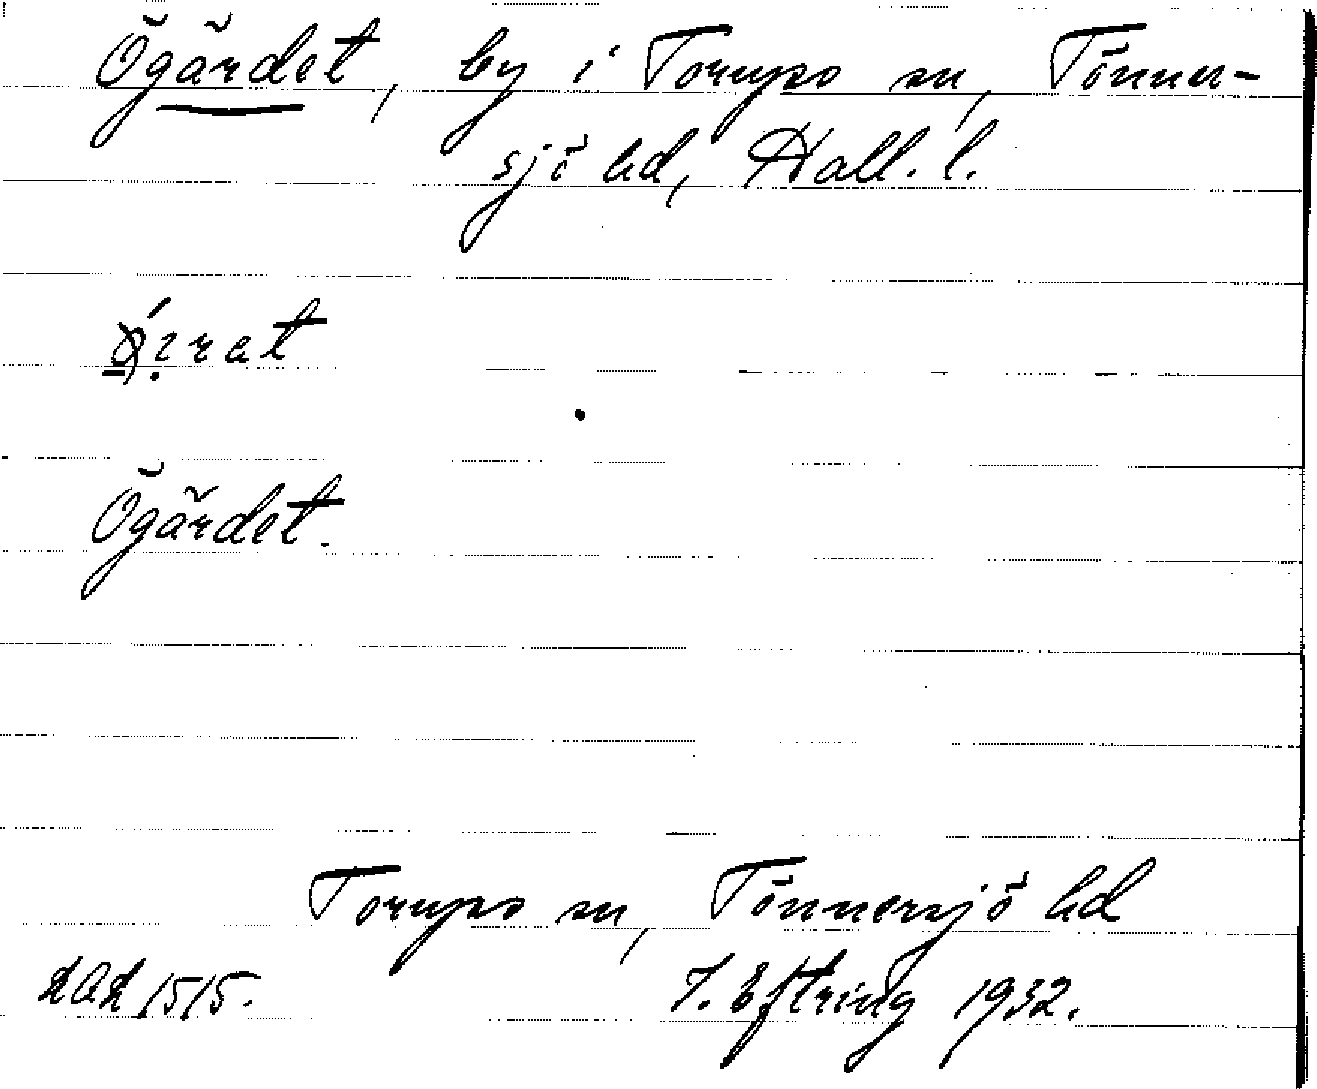 Ögärdet, by i Torups sn, Tönner-
sjö hd, Hall. l.
Ögärdet.
Torups sn, Tönnersjö hd
LAL 1515. J. Eftring 1932.